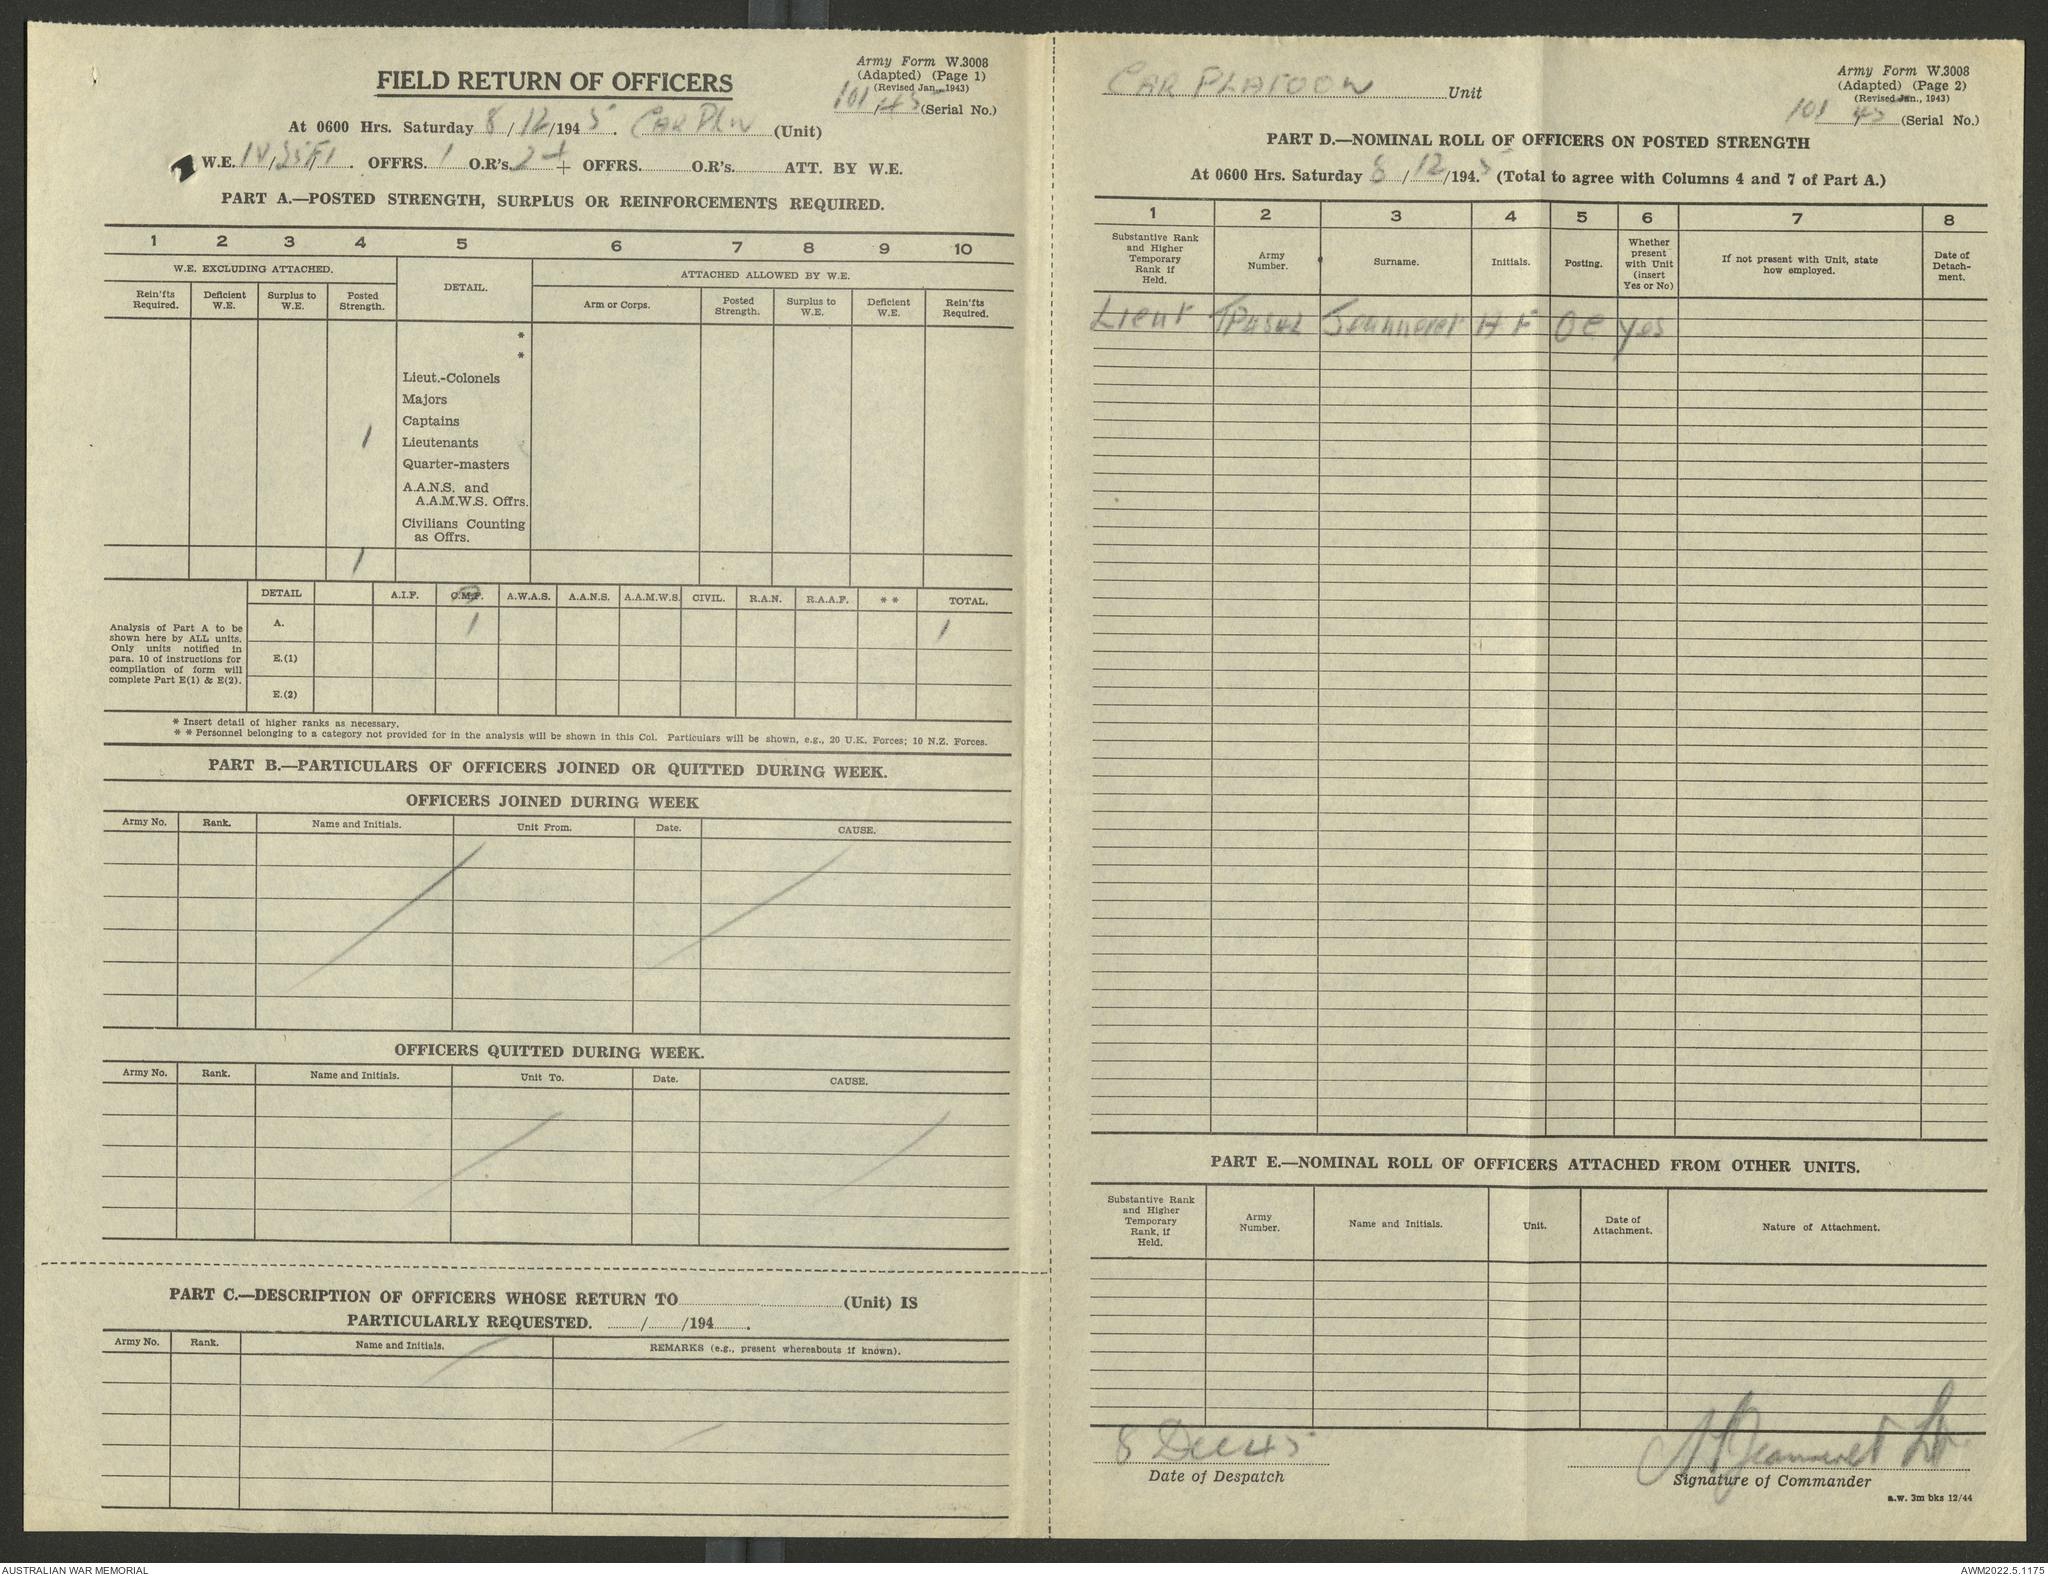 Army Form W.3008
(Adapted) (Page 1)
(Revised Jan., 1943)
FIELD RETURN OF OFFICERS
101/45 (Serial No.)
At 0600 Hrs. Saturday 8/12/1945. CAR PLN (Unit)
W.E. OFFRS. 1 O.R's. + OFFRS. O.R's. ATT. BY W.E.
PART A.—POSTED STRENGTH, SURPLUS OR REINFORCEMENTS REQUIRED.
1 2 3 4 5 6 7 8 9 10
W.E. EXCLUDING ATTACHED. DETAIL. ATTACHED ALLOWED BY W.E.
Rein'fts Required. Deficient W.E. Surplus to W.E. Posted Strength. Arm or Corps. Posted Strength. Surplus to W.E. Deficient W.E. Rein'fts Required.
*
*
Lieut.-Colonels
Majors
Captains
1 Lieutenants
Quarter-masters
A.A.N.S. and
A.A.M.W.S. Offrs.
Civilians Counting
as Offrs.
1
DETAIL A.I.F. C.M.F. A.W.A.S. A.A.N.S. A.A.M.W.S. CIVIL. R.A.N. R.A.A.F. * * TOTAL.
Analysis of Part A to be
shown here by ALL units.
Only units notified in
para. 10 of instructions for
compilation of form will
complete Part E(1) & E(2).
A. 1 1
E.(1)
E.(2)
* Insert detail of higher ranks as necessary.
* * Personnel belonging to a category not provided for in the analysis will be shown in this Col. Particulars will be shown, e.g., 20 U.K. Forces; 10 N.Z. Forces.
PART B.—PARTICULARS OF OFFICERS JOINED OR QUITTED DURING WEEK.
OFFICERS JOINED DURING WEEK
Army No. Rank. Name and Initials. Unit From. Date. CAUSE.
OFFICERS QUITTED DURING WEEK.
Army No. Rank. Name and Initials. Unit To. Date. CAUSE.
PART C.—DESCRIPTION OF OFFICERS WHOSE RETURN TO (Unit) IS
PARTICULARLY REQUESTED. / /194 .
Army No. Rank. Name and Initials. REMARKS (e.g., present whereabouts if known).
Army Form W.3008
(Adapted) (Page 2)
(Revised Jan., 1943)
CAR PLATOON Unit
101 45 (Serial No.)
PART D.—NOMINAL ROLL OF OFFICERS ON POSTED STRENGTH
At 0600 Hrs. Saturday 8/12/1945 (Total to agree with Columns 4 and 7 of Part A.)
1 2 3 4 5 6 7 8
Substantive Rank and Higher Temporary Rank if Held. Army Number. Surname. Initials. Posting. Whether present with Unit (insert Yes or No) If not present with Unit, state how employed. Date of Detach-ment.
Lieut Jeanneret H F OC Yes
PART E.—NOMINAL ROLL OF OFFICERS ATTACHED FROM OTHER UNITS.
Substantive Rank and Higher Temporary Rank, if Held. Army Number. Name and Initials. Unit. Date of Attachment. Nature of Attachment.
8 Dec 45
Date of Despatch
Jeanneret Lt
Signature of Commander
a.w. 3m bks 12/44
AUSTRALIAN WAR MEMORIAL
AWM2022.5.1175